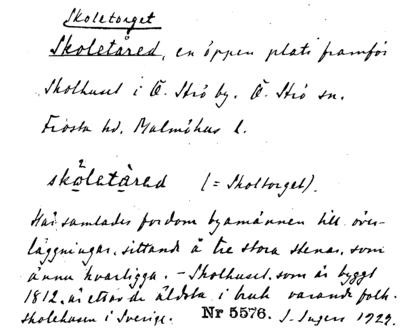 Skoletorget
Skoletåred, en öppen plats framför
Skolhuset i Ö. Strö by. Ö. Strö sn.
Frosta hd. Malmöhus l.
skoletåred (= Skoltorget).
Här samlades fordom byamännen till över-
läggningar, sittande å tre stora stenar, som
ännu kvarligga. – Skolhuset, som är byggt
1812, är ett av de äldsta i bruk varande folk-
skolehusen i Sverige. Nr 5576. J. Ingers 1929.